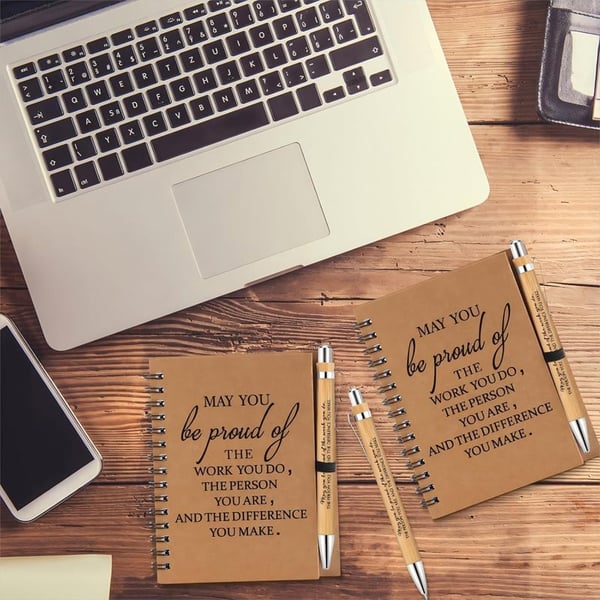 MAY YOU
be proud of
THE
WORK YOU DO,
THE PERSON
YOU ARE,
AND THE DIFFERENCE
YOU MAKE.
MAY YOU
be proud of
THE
WORK YOU DO,
THE PERSON
YOU ARE,
AND THE DIFFERENCE
YOU MAKE.